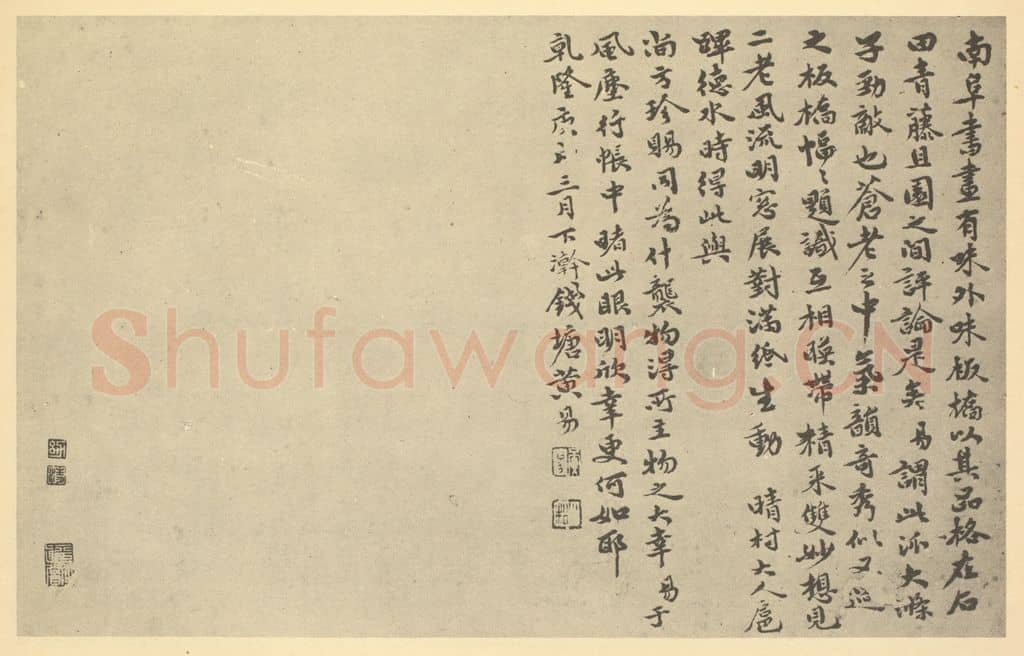 南阜書畫有味外味板橋以其品格在石
田青藤且園之間評論是矣易謂此派大滌
子勁敵也蒼老之中氣韻奇秀似又過
之板橋幅〻題識互相暎帶精采雙妙想見
二老風流明窓展對滿紙生動 晴村大人扈
蹕德水時得此與
尚方珍賜同為什襲物得所主物之大幸易于
風塵行帳中睹此眼明欣幸更何如耶
乾隆庚戌三月下澣錢塘黃易
Shufawang.CN